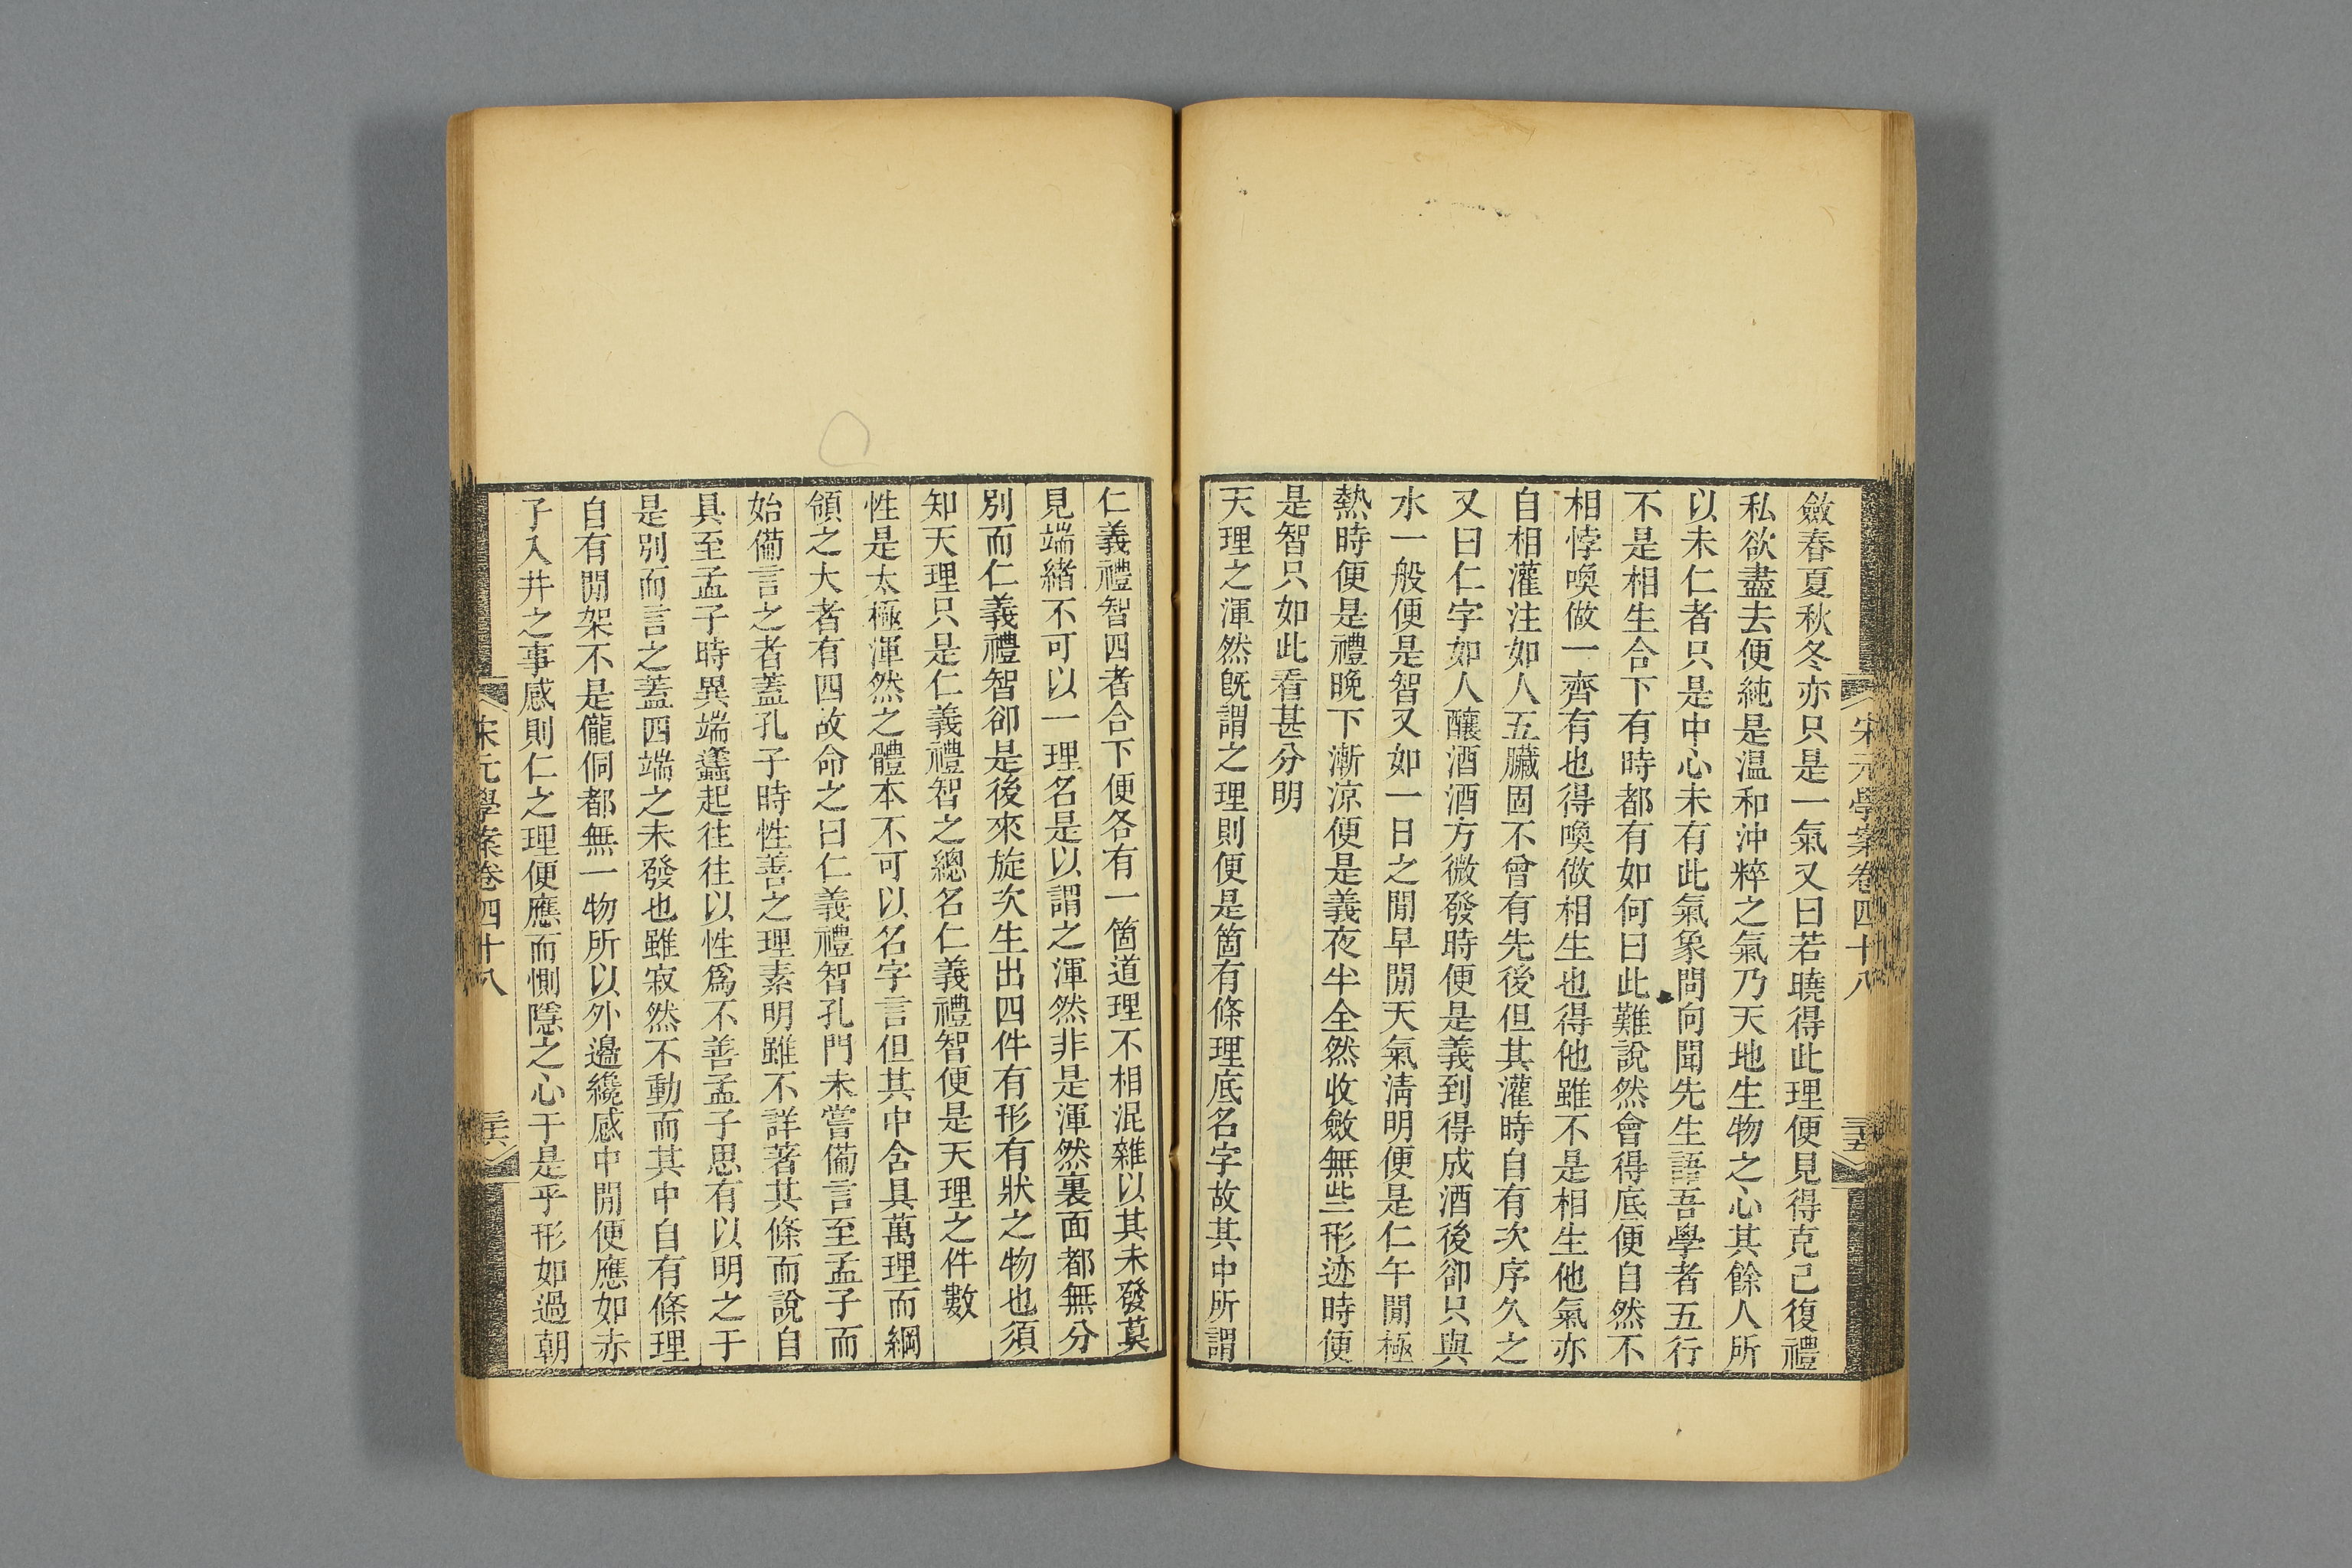 宋元學案卷四十八
三十五
斂春夏秋冬亦只是一氣又曰若曉得此理便見得克己復禮
私欲盡去便純是温和沖粹之氣乃天地生物之心其餘人所
以未仁者只是中心未有此氣象問向聞先生語吾學者五行
不是相生合下有時都有如何曰此難說然會得底便自然不
相悖喚做一齊有也得喚做相生也得他雖不是相生他氣亦
自相灌注如人五臟固不曾有先後但其灌時自有次序久之
又曰仁字如人釀酒酒方微發時便是義到得成酒後卻只與
水一般便是智又如一日之閒早閒天氣淸明便是仁午閒極
熱時便是禮晚下漸涼便是義夜半全然收斂無些形迹時便
是智只如此看甚分明
天理之渾然旣謂之理則便是箇有條理底名字故其中所謂
仁義禮智四者合下便各有一箇道理不相混雜以其未發莫
見端緒不可以一理名是以謂之渾然非是渾然裏面都無分
別而仁義禮智卻是後來旋次生出四件有形有狀之物也須
知天理只是仁義禮智之總名仁義禮智便是天理之件數
性是太極渾然之體本不可以名字言但其中含具萬理而綱
領之大者有四故命之曰仁義禮智孔門未嘗備言至孟子而
始備言之者蓋孔子時性善之理素明雖不詳著其條而說自
具至孟子時異端蠭起往往以性爲不善孟子思有以明之于
是別而言之蓋四端之未發也雖寂然不動而其中自有條理
自有閒架不是儱侗都無一物所以外邊纔感中閒便應如赤
子入井之事感則仁之理便應而惻隱之心于是乎形如過朝
宋元學案卷四十八
三十六